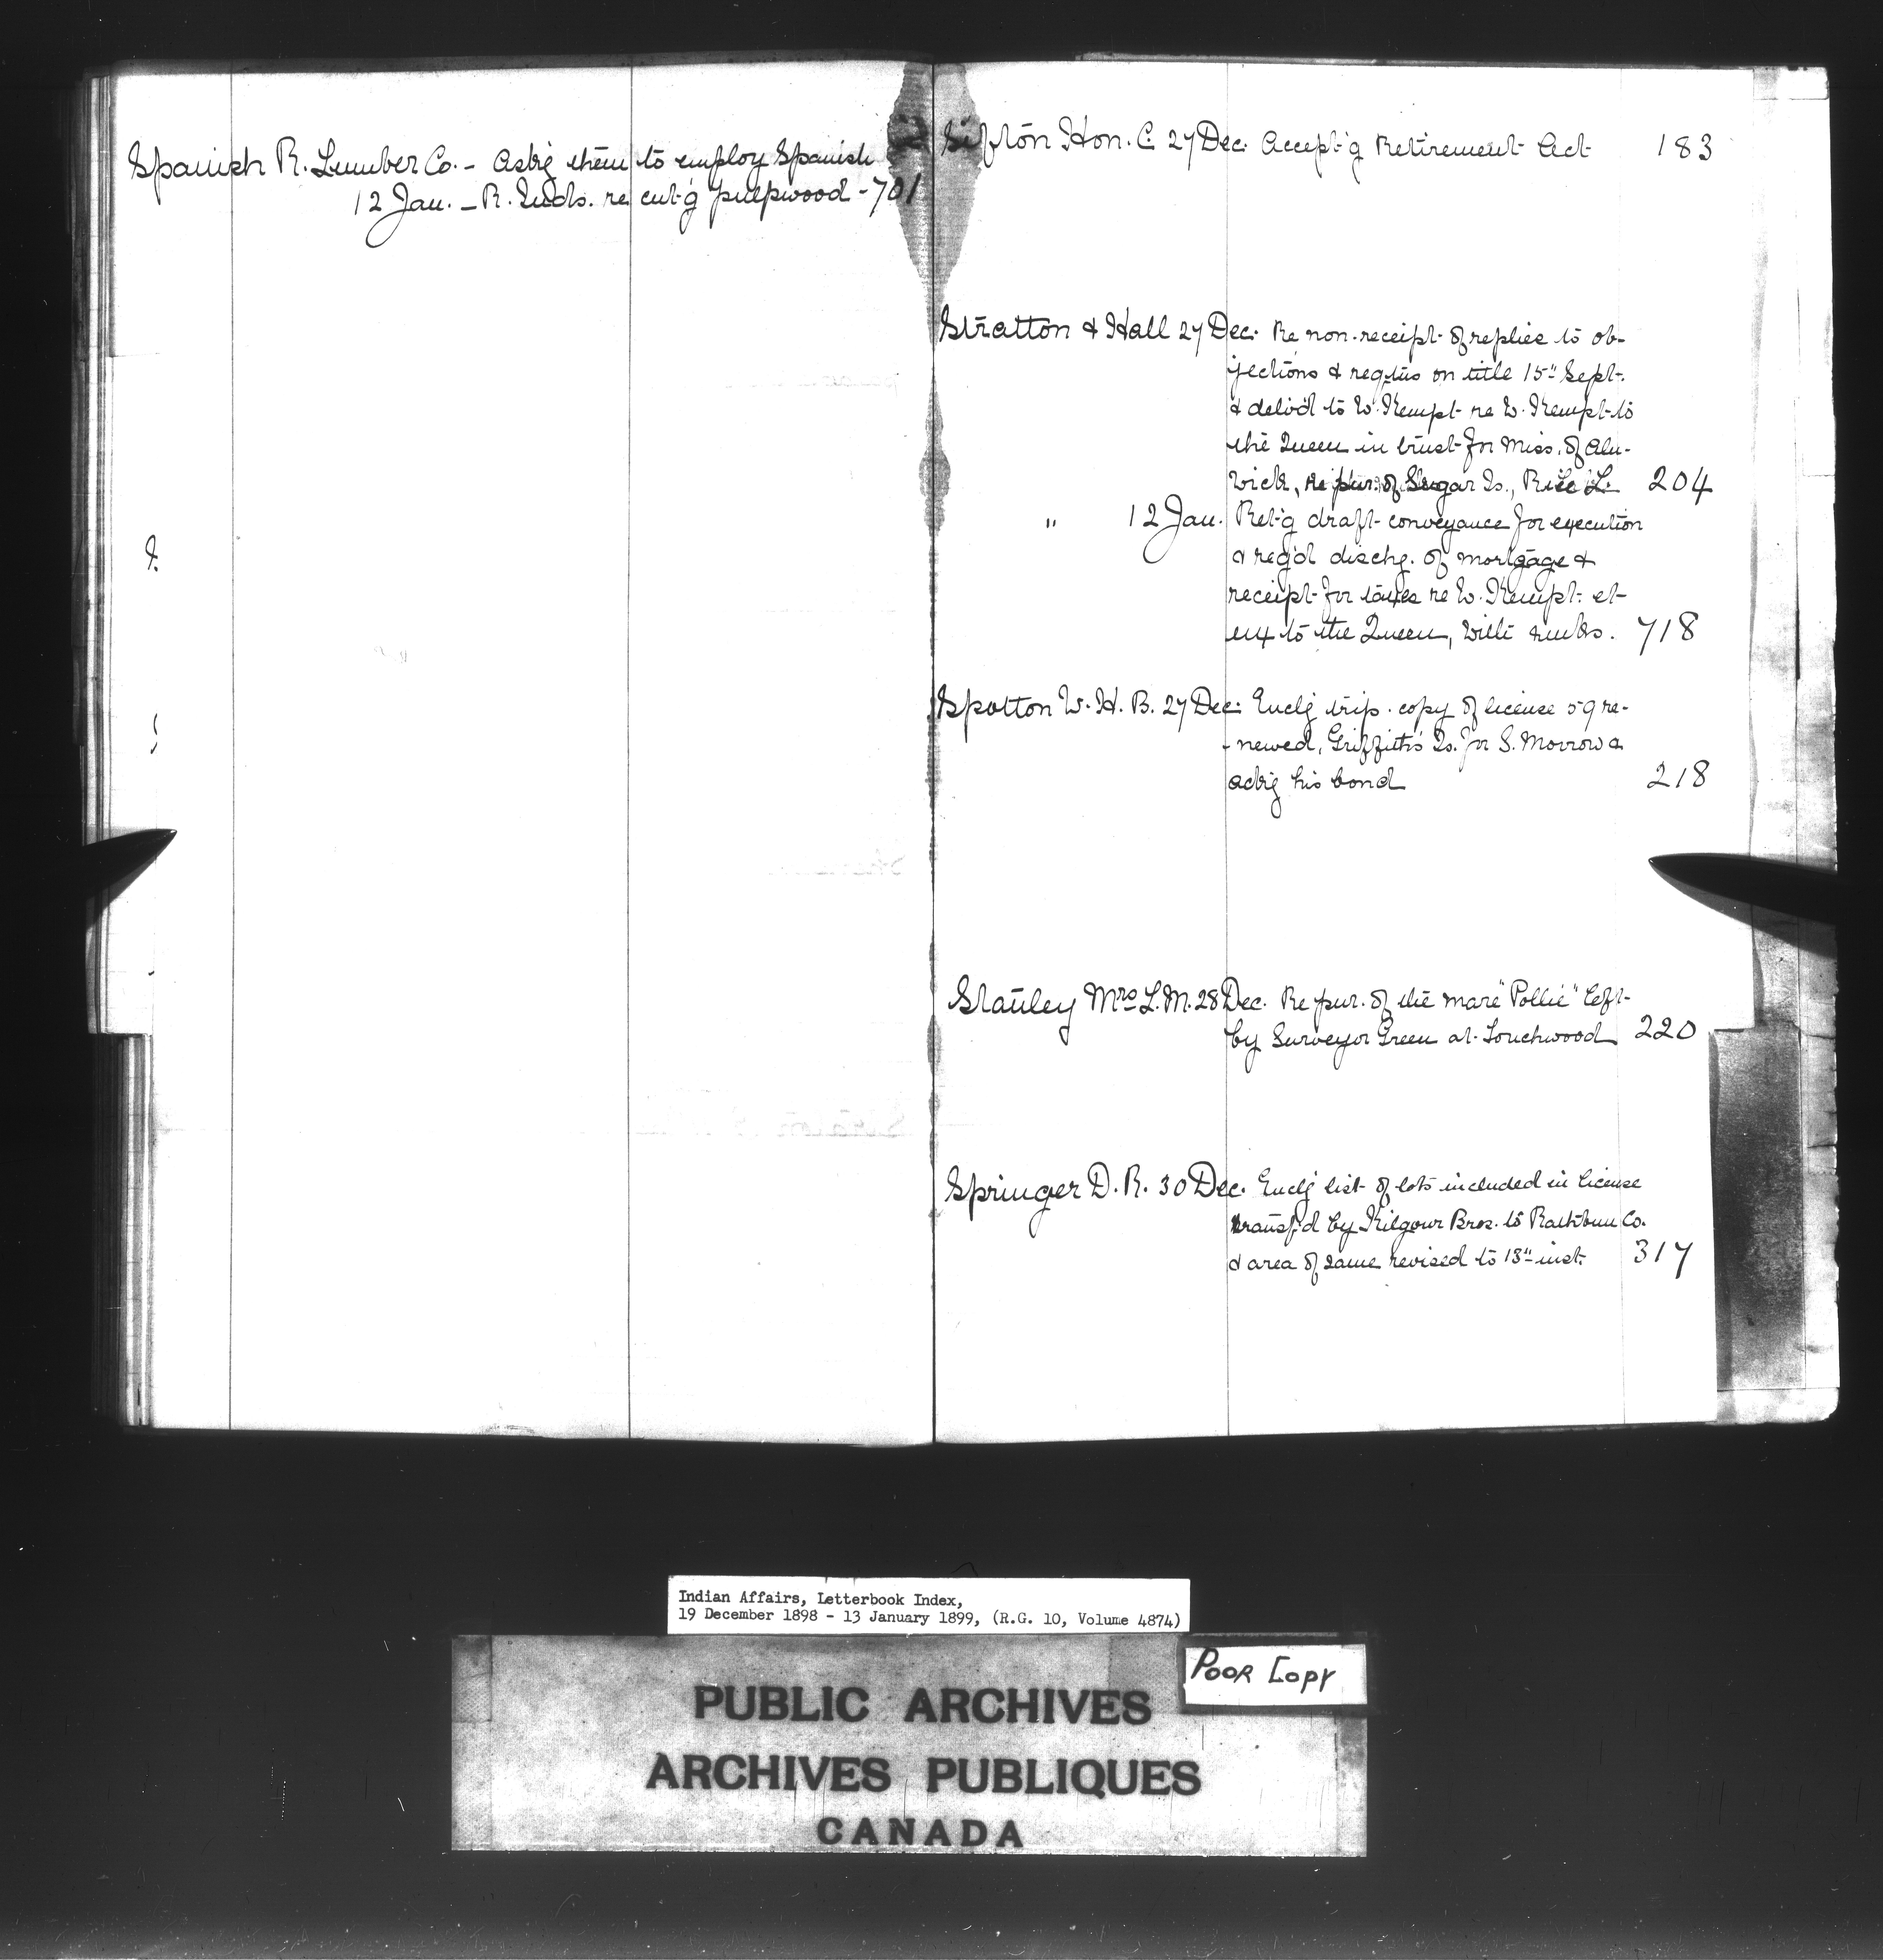 Spanish R. Lumber Co. - Askg them to employ Spanish
12 Jan. - R. Inds. re cut'g pulpwood - 701
Sifton Hon. C. 27 Dec. Accept'g Retirement Act 183
Stratton & Hall 27 Dec. Re non-receipt of replies to ob-
jections & reqtns on title 15" Sept.
& deliv'd to W. Kempt re W. Kempt to
the Queen in trust for Miss. of Aln-
wick, re pur. of Sugar Is., Rice L. 204
" 12 Jan. Ret'g draft conveyance for execution
& reg'd dischg. of mortgage &
receipt for taxes re W. Kempt. et
ux to the Queen, with rmks. 718
Spotton W. H. B. 27 Dec. Enclg trip. copy of license 59 re-
newed, Griffith's Is. for S. Morrow &
askg his bond 218
Stanley Mrs L. M. 28 Dec. Re pur. of the mare "Pollie" left
by Surveyor Green at Touchwood 220
Springer D. R. 30 Dec. Enclg list of lots included in license
transf'd by Kilgour Bros. to Rathbun Co.
& area of same revised to 13" inst. 317
Indian Affairs, Letterbook Index,
19 December 1898 - 13 January 1899, (R.G. 10, Volume 4874)
POOR COPY
PUBLIC ARCHIVES
ARCHIVES PUBLIQUES
CANADA